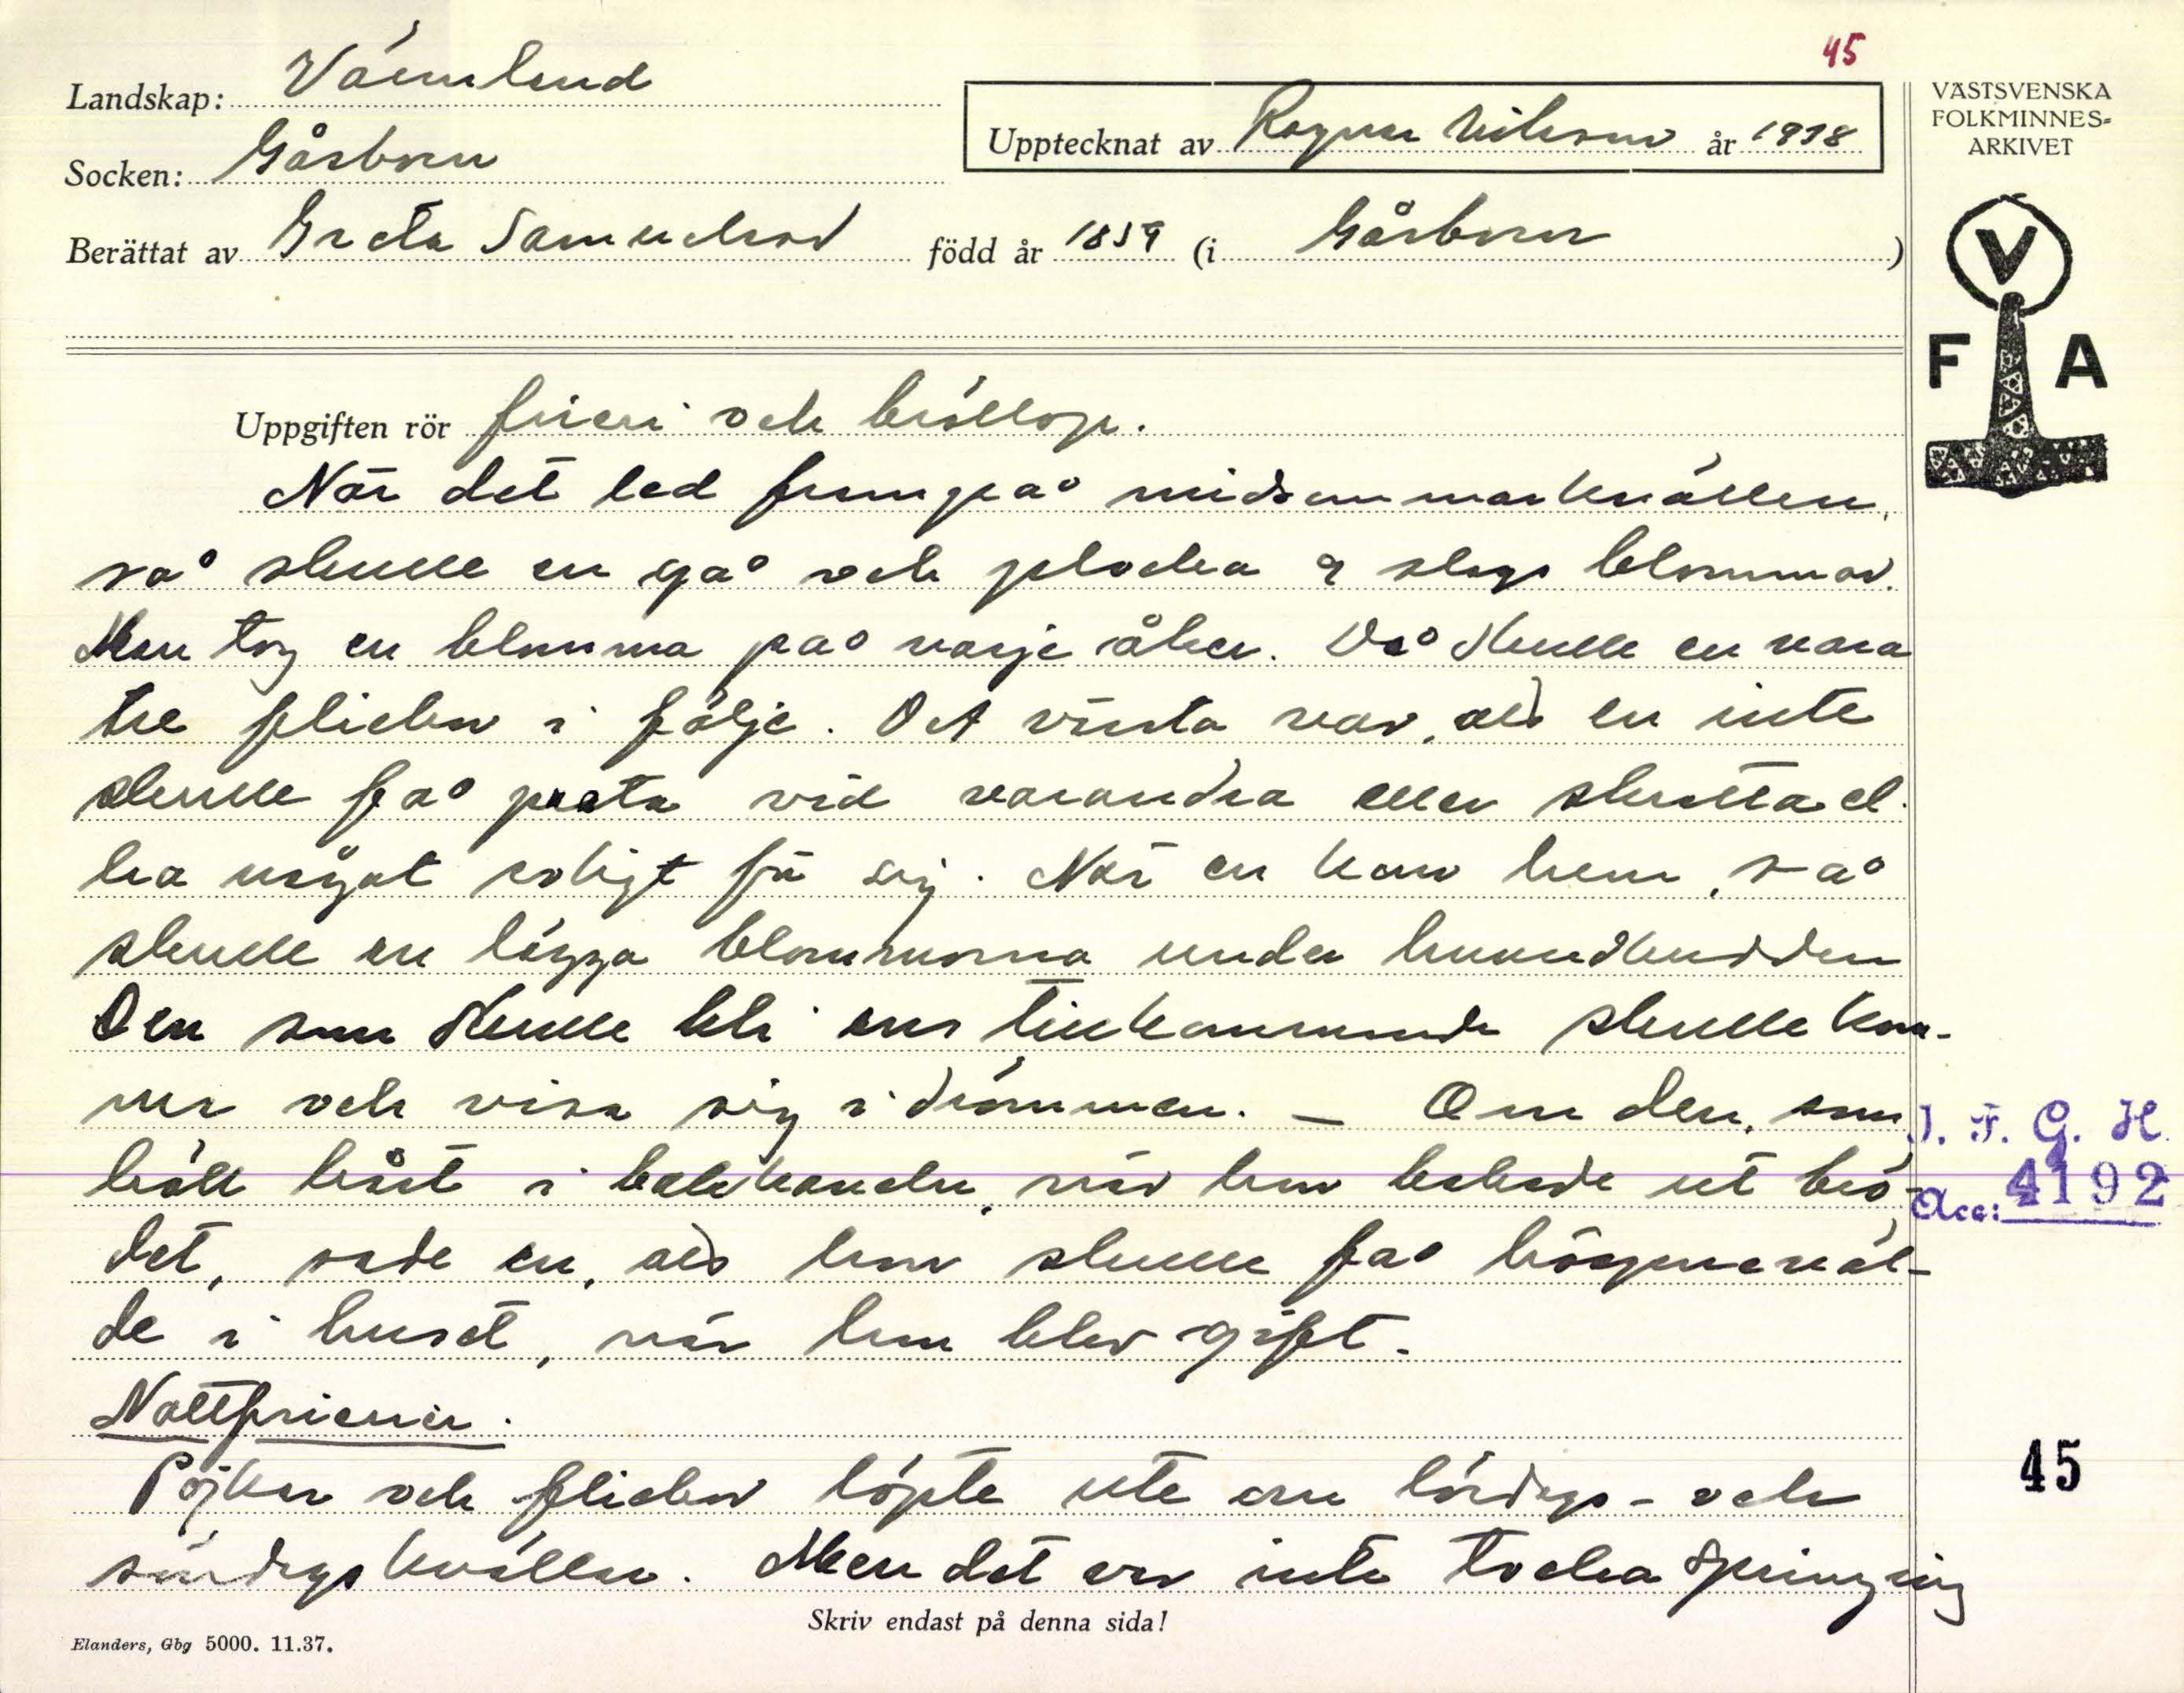 45
Landskap: Värmland
Upptecknat av Ragnar Nilsson år 1938
Socken: Gåsborn
Berättat av Greta Samuelsson född år 1859 (i Gåsborn)
VÄSTSVENSKA
FOLKMINNES-
ARKIVET
V
F A
Uppgiften rör frieri och bröllop.
När det led fram på midsommarkvällen,
så skulle en gå och plocka 9 slags blommor.
Man tog en blomma på varje åker. Då skulle en vara
tre flickor i följe. Det värsta var, att en inte
skulle få prata vid varandra eller skratta el.
ha något roligt för sig. När en kom hem, så
skulle en lägga blommorna under huvudkudden
Den som skulle bli ens tillkommande skulle kom-
ma och visa sig i drömmen. — Om den, som
höll hårt i bakkaveln, när hon bakade ut brö-
det, sade en, att hon skulle få högmavål-
de i huset, när hon blev gift.
Nattfrierier.
Pojkar och flickor löpte ute om lördags- och
söndagskvällar. Men det var inte tocka spring
I. F. G. H.
Acc: 4192
45
Skriv endast på denna sida!
Elanders, Gbg 5000. 11.37.